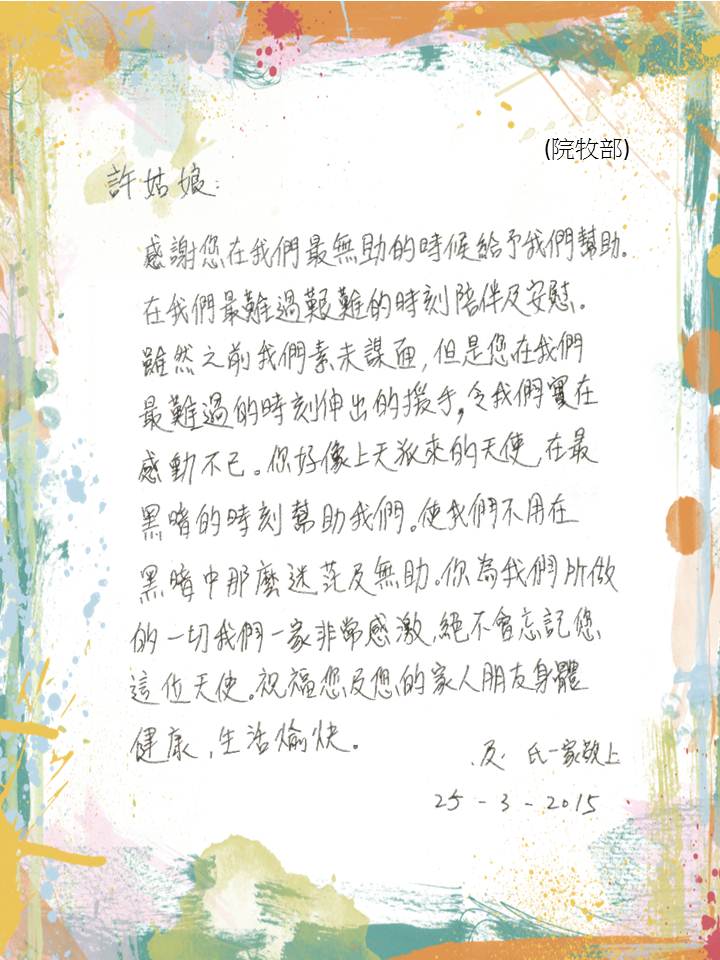 (院牧部)
許姑娘：
感謝您在我們最無助的時候給予我們幫助。
在我們最難過艱難的時刻陪伴及安慰。
雖然之前我們素未謀面，但是您在我們
最難過的時刻伸出的援手，令我們實在
感動不已。你好像上天派來的天使，在最
黑暗的時刻幫助我們。使我們不用在
黑暗中那麼迷茫及無助。你為我們所做
的一切我們一家非常感激，絕不會忘記您
這位天使。祝福您及您的家人朋友身體
健康，生活愉快。
及 氏一家敬上
25-3-2015